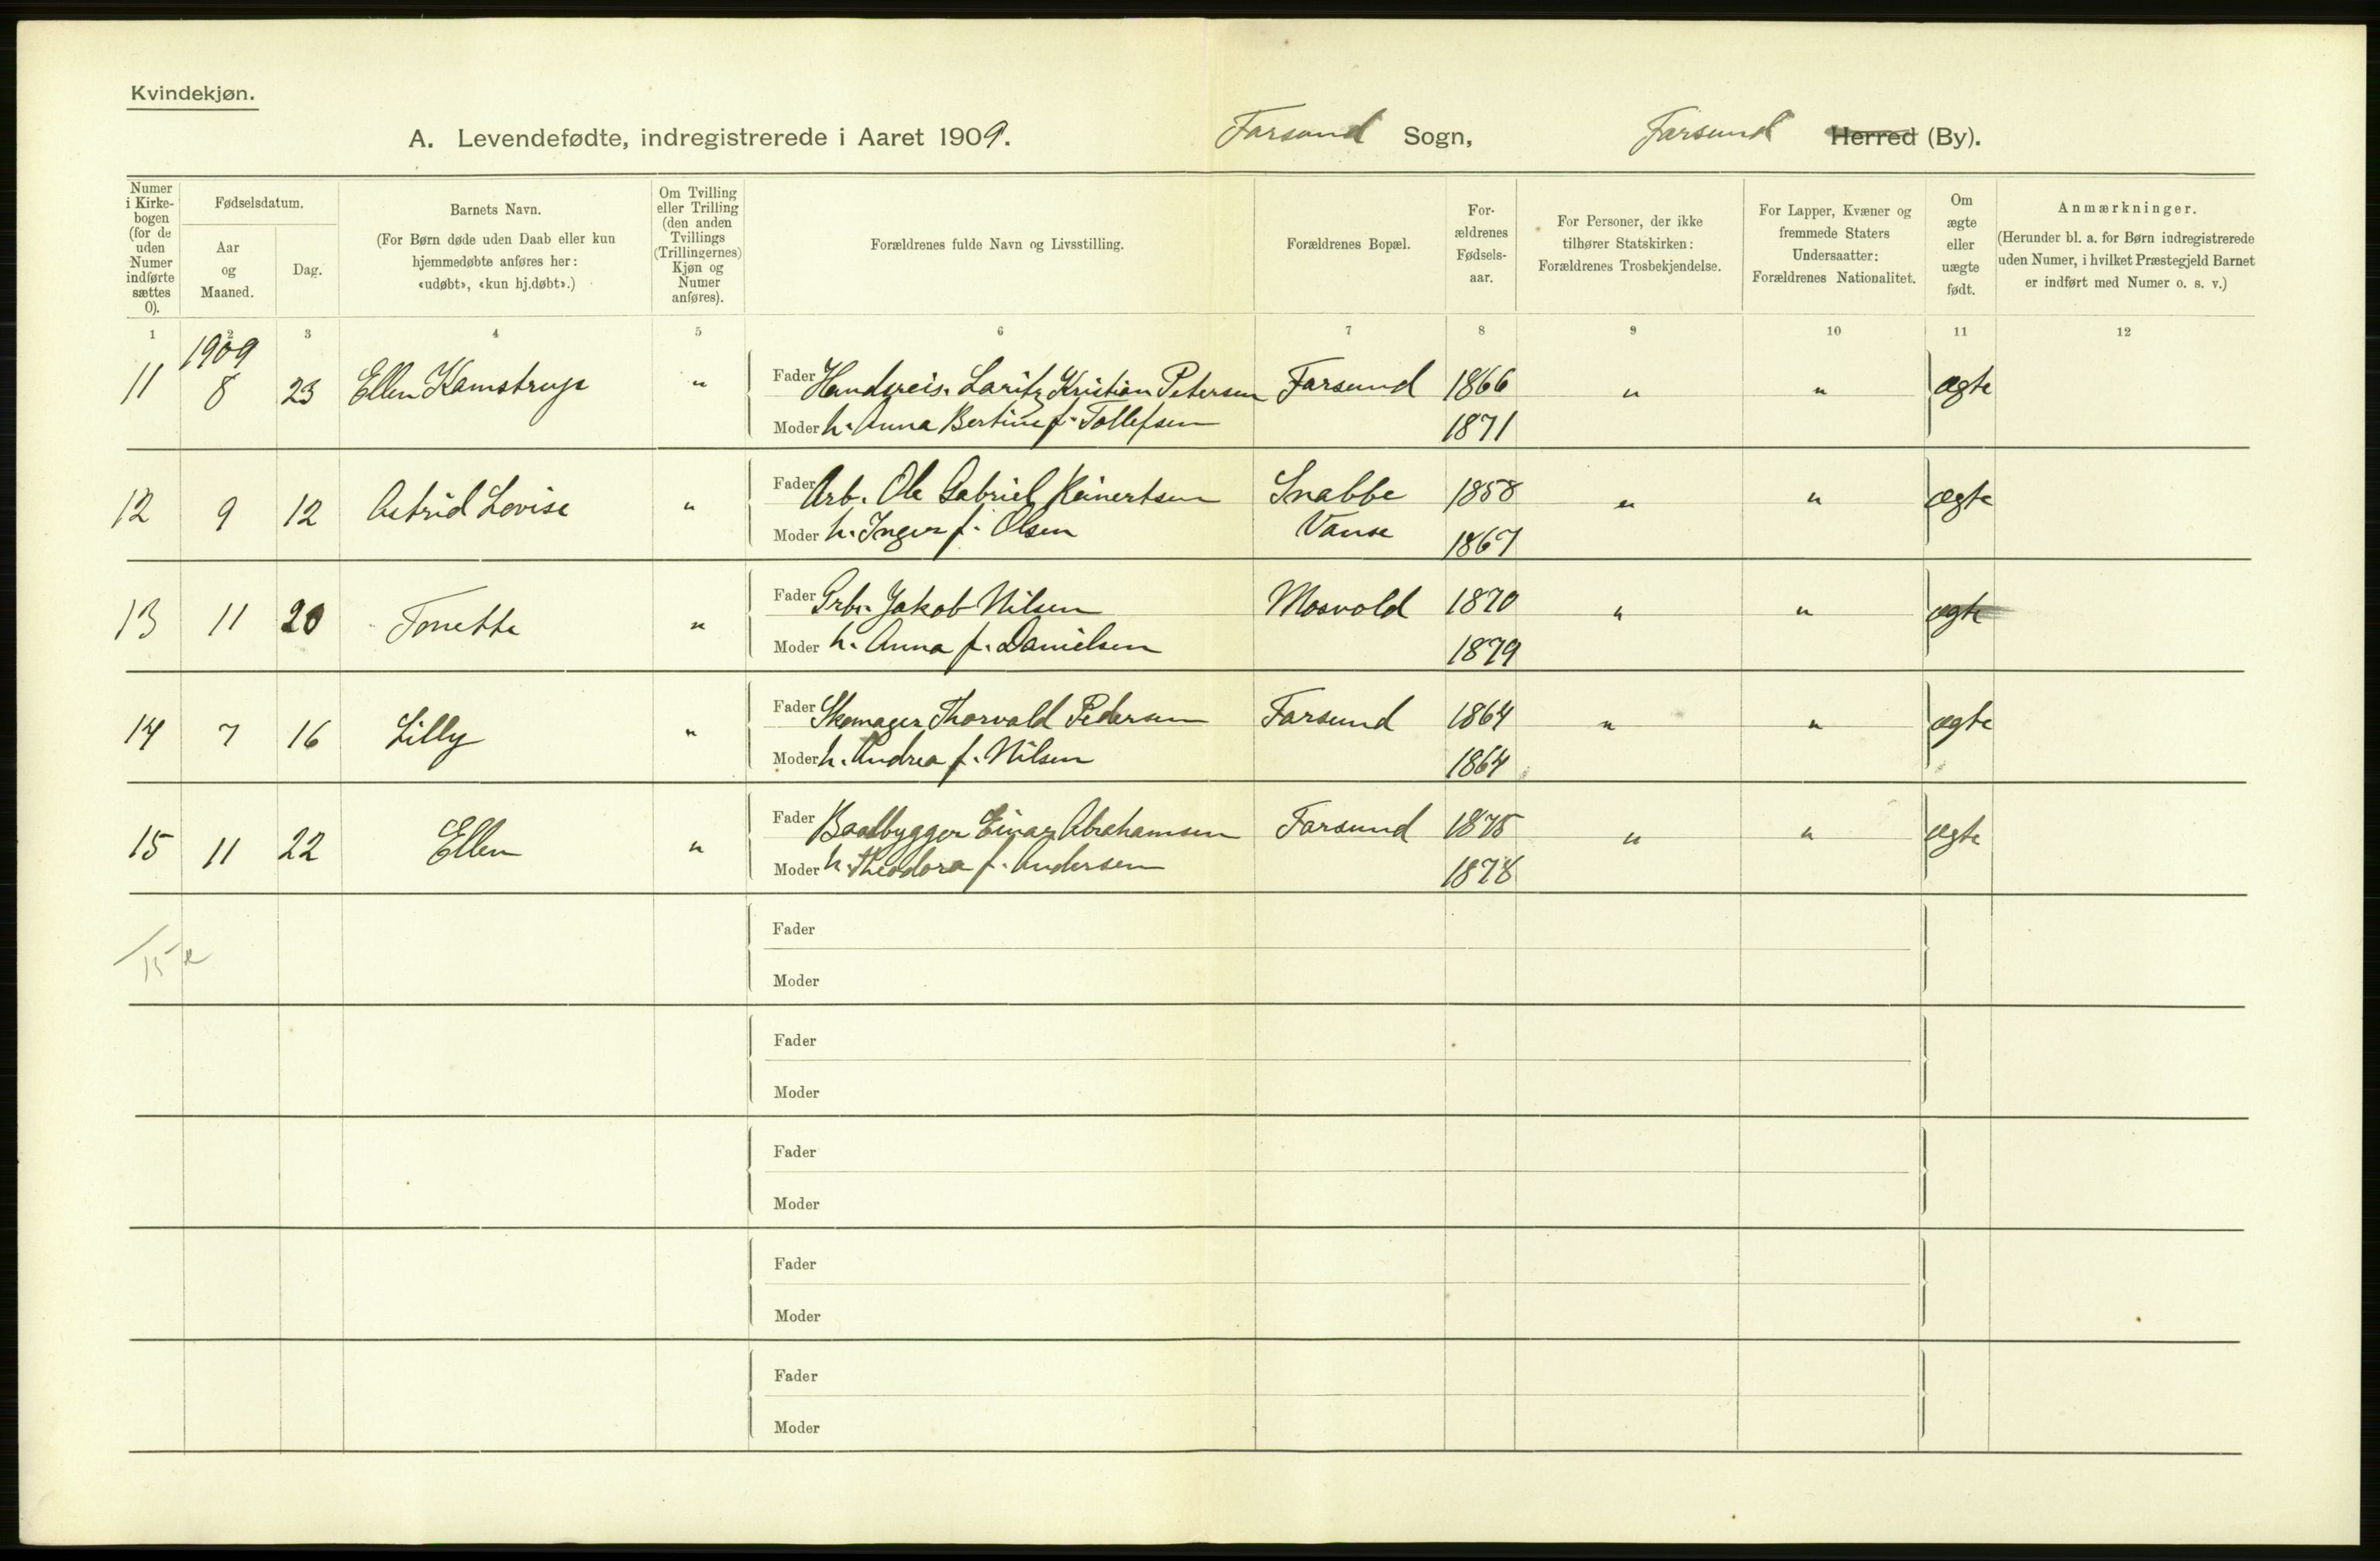 Kvindekjøn.
A. Levendefødte, indregistrerede i Aaret 1909. Farsund Sogn, Farsund Herred (By).
Numer i Kirke-bogen (for de uden Numer indførte sættes 0).
Fødselsdatum.
Aar og Maaned.
Dag.
Barnets Navn.
(For Børn døde uden Daab eller kun hjemmedøbte anføres her: «udøbt», «kun hj.døbt».)
Om Tvilling eller Trilling (den anden Tvillings (Trillingernes) Kjøn og Numer anføres).
Forældrenes fulde Navn og Livsstilling.
Forældrenes Bopæl.
For-ældrenes Fødsels-aar.
For Personer, der ikke tilhører Statskirken: Forældrenes Trosbekjendelse.
For Lapper, Kvæner og fremmede Staters Undersaatter: Forældrenes Nationalitet.
Om ægte eller uægte født.
Anmærkninger.
(Herunder bl. a. for Børn indregistrerede uden Numer, i hvilket Præstegjeld Barnet er indført med Numer o. s. v.)
1 2 3 4 5 6 7 8 9 10 11 12
1909
11 8 23 Ellen Kamstrup " Fader Handsreis. Lauritz Kristian Petersen Farsund 1866 " " ægte
Moder h. Anna Bertine f. Tollefsen 1871
12 9 12 Astrid Lovise " Fader Arb. Ole Gabriel Reinertsen Snabbe 1858 " " ægte
Moder h. Inger f. Olsen Vanse 1867
13 11 20 Tonette " Fader Grbr. Jakob Nilsen Mosvold 1870 " " ægte
Moder h. Anna f. Danielsen 1879
14 7 16 Lilly " Fader Skomager Thorvald Pedersen Farsund 1864 " " ægte
Moder h. Andrea f. Nilsen 1864
15 11 22 Ellen " Fader Baadbygger Einar Abrahamsen Farsund 1875 " " ægte
Moder h. Theodora f. Andersen 1878
Fader
15
Moder
Fader
Moder
Fader
Moder
Fader
Moder
Fader
Moder